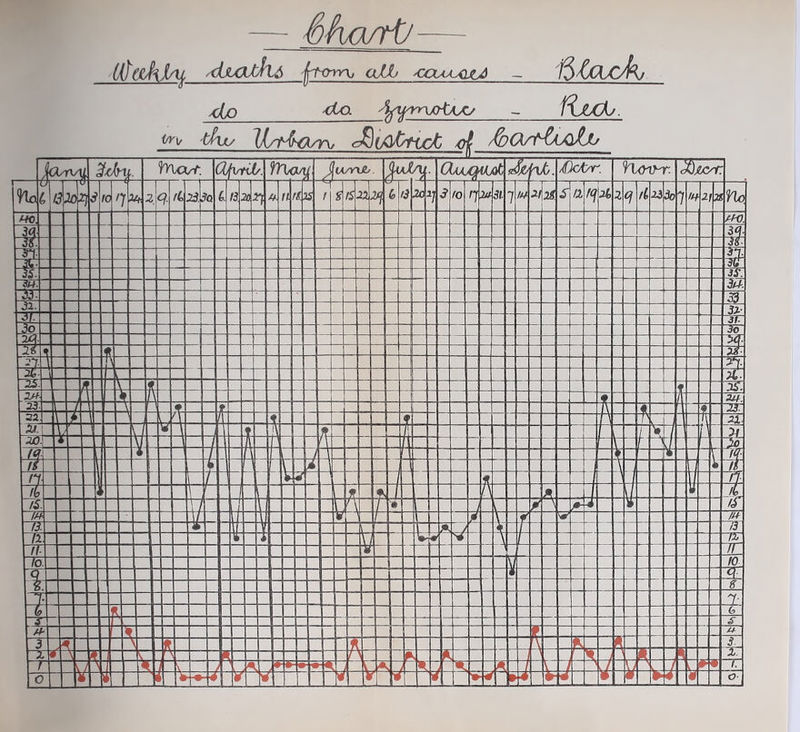 — Chart —
Weekly deaths from all causes — Black
do do Zymotic — Red.
in the Urban District of Carlisle
Jany Feby. Mar. April. May June. July. August Sept. Octr. Novr. Decr.
No 6 13 20 27 3 10 17 24 2 9 16 23 30 6 13 20 27 4 11 18 25 1 8 15 22 29 6 13 20 27 3 10 17 24 31 7 14 21 28 5 12 19 26 2 9 16 23 30 7 14 21 28 No
40 40
39 39
38 38
37 37
36 36
35 35
34 34
33 33
32 32
31 31
30 30
29 29
28 28
27 27
26 26
25 25
24 24
23 23
22 22
21 21
20 20
19 19
18 18
17 17
16 16
15 15
14 14
13 13
12 12
11 11
10 10
9 9
8 8
7 7
6 6
5 5
4 4
3 3
2 2
1 1
0 0